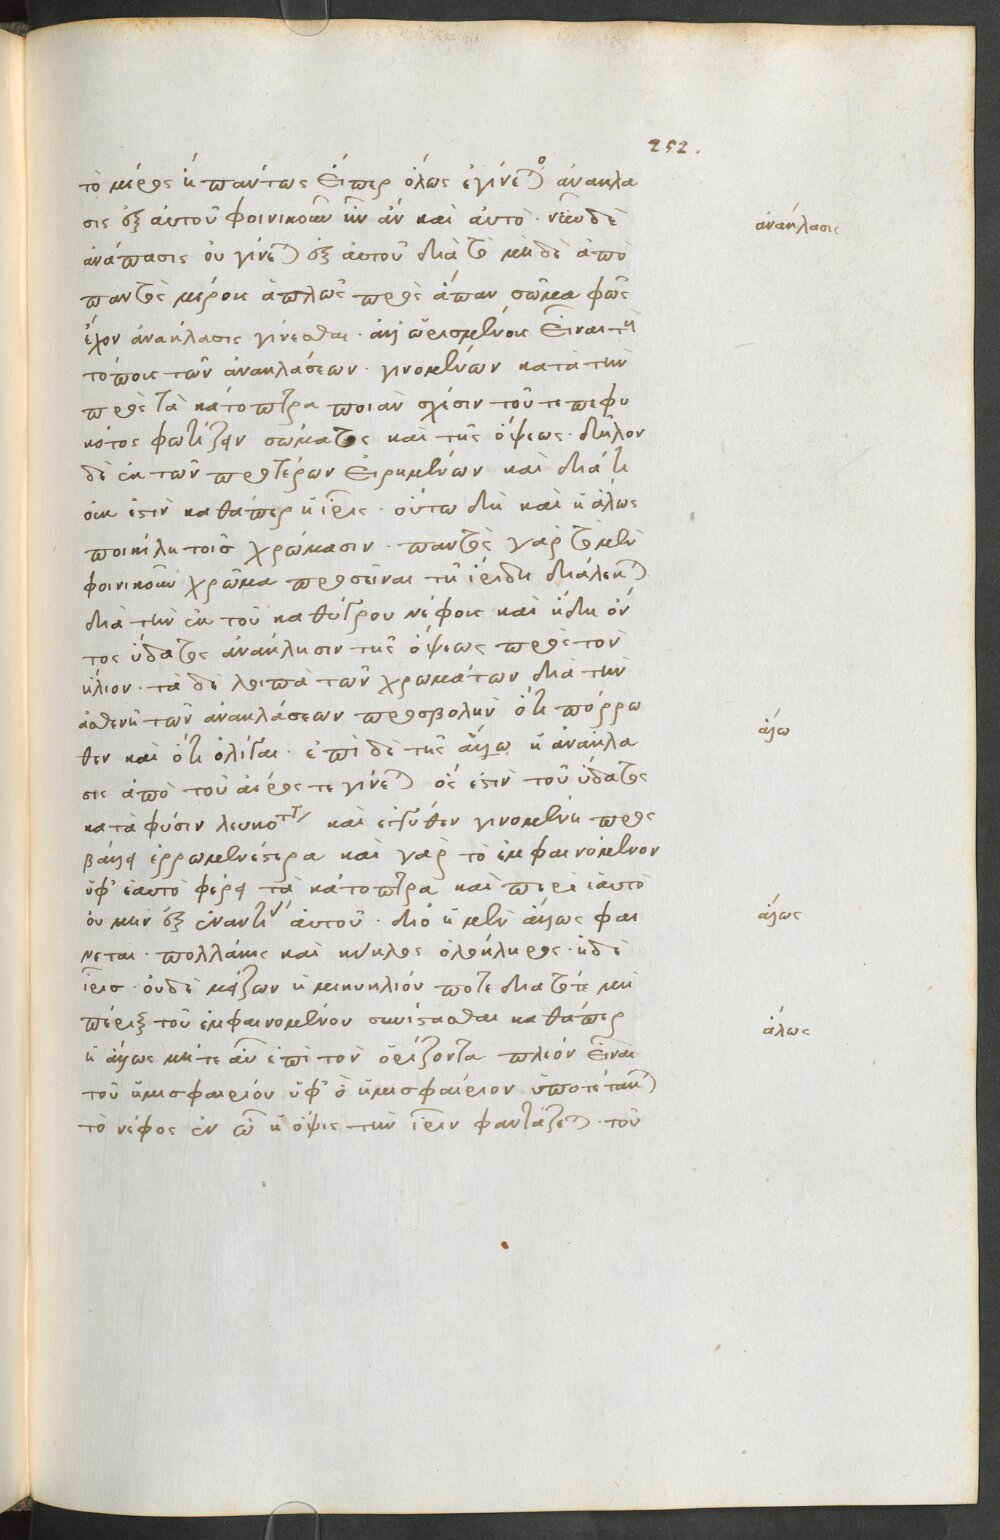 252.
τὸ μέρος ἢ πάντως εἴπερ ὅλως ἐγίνετο ἀνακλα
σις ἐξ αὐτοῦ φοινικοῦν ἦν ἂν καὶ αὐτό· νῦν δὲ
ἀνάπασις οὐ γίνεται ἐξ αὐτοῦ διὰ τὸ μὴ δὲ ἀπὸ
παντὸς μέρους ἁπλῶς πρὸς ἅπαν σῶμα φῶς
ἔχον ἀνάκλασις γίνεσθαι· ἀλλ' ὡρισμένους εἶναι τοὺς
τόπους τῶν ἀνακλάσεων· γινομένων κατὰ τὴν
πρὸς τὰ κάτοπτρα ποιὰν σχέσιν τοῦ τε πεφυ
κότος φωτίζειν σώματος καὶ τῆς ὄψεως· δῆλον
δὲ ἐκ τῶν προτέρων εἰρημένων καὶ διὰ τί
οὐκ ἐστὶν καθάπερ ἡ ἶρις· οὕτω δὴ καὶ ἡ ἅλως
ποικίλη τοῖς χρώμασιν· παντὸς γὰρ τὸ μὲν
φοινικοῦν χρῶμα προσεῖναι τῇ ἴριδι διάλεκται
διὰ τὴν ἐκ τοῦ καθύγρου νέφους καὶ ἤδη ὄν
τος ὕδατος ἀνάκλησιν τῆς ὄψεως πρὸς τὸν
ἥλιον· τὰ δὲ λοιπὰ τῶν χρωμάτων διὰ τὴν
ἀσθενῆ τῶν ἀνακλάσεων προσβολὴν ὅτι πόρρω
θεν καὶ ὅτι ὀλίγαι· ἐπὶ δὲ τῆς ἅλω ἡ ἀνάκλα
σις ἀπὸ τοῦ ἀέρος τε γίνεται ὅς ἐστιν τοῦ ὕδατος
κατὰ φύσιν λευκότερος καὶ ἐγγύθεν γινομένη προς
βάλλει ἐρρωμενέστερα καὶ γὰρ τὸ ἐμφαινόμενον
ὑφ' ἑαυτὸ φέρει τὰ κάτοπτρα καὶ περὶ ἑαυτὸ
οὐ μὴν ἐξ ἐναντίας αὐτοῦ· διὸ ἡ μὲν ἅλως φαι
νεται· πολλάκις καὶ κύκλος ὁλόκληρος· ἡ δὲ
ἶρις· οὐδὲ μείζων ἡμικυκλίου ποτε διὰ τό τε μὴ
πέριξ τοῦ ἐμφαινομένου συνίστασθαι καθάπερ
ἡ ἅλως μήτε ἂν ἐπὶ τὸν ὁρίζοντα πλέον εἶναι
τοῦ ἡμισφαιρίου ὑφ' ὃ ἡμισφαίριον ὑποτέτακται
τὸ νέφος ἐν ᾧ ἡ ὄψις τὴν ἶριν φαντάζεται· τοῦ
ἀνάκλασις
ἅλω
ἅλως
ἅλως